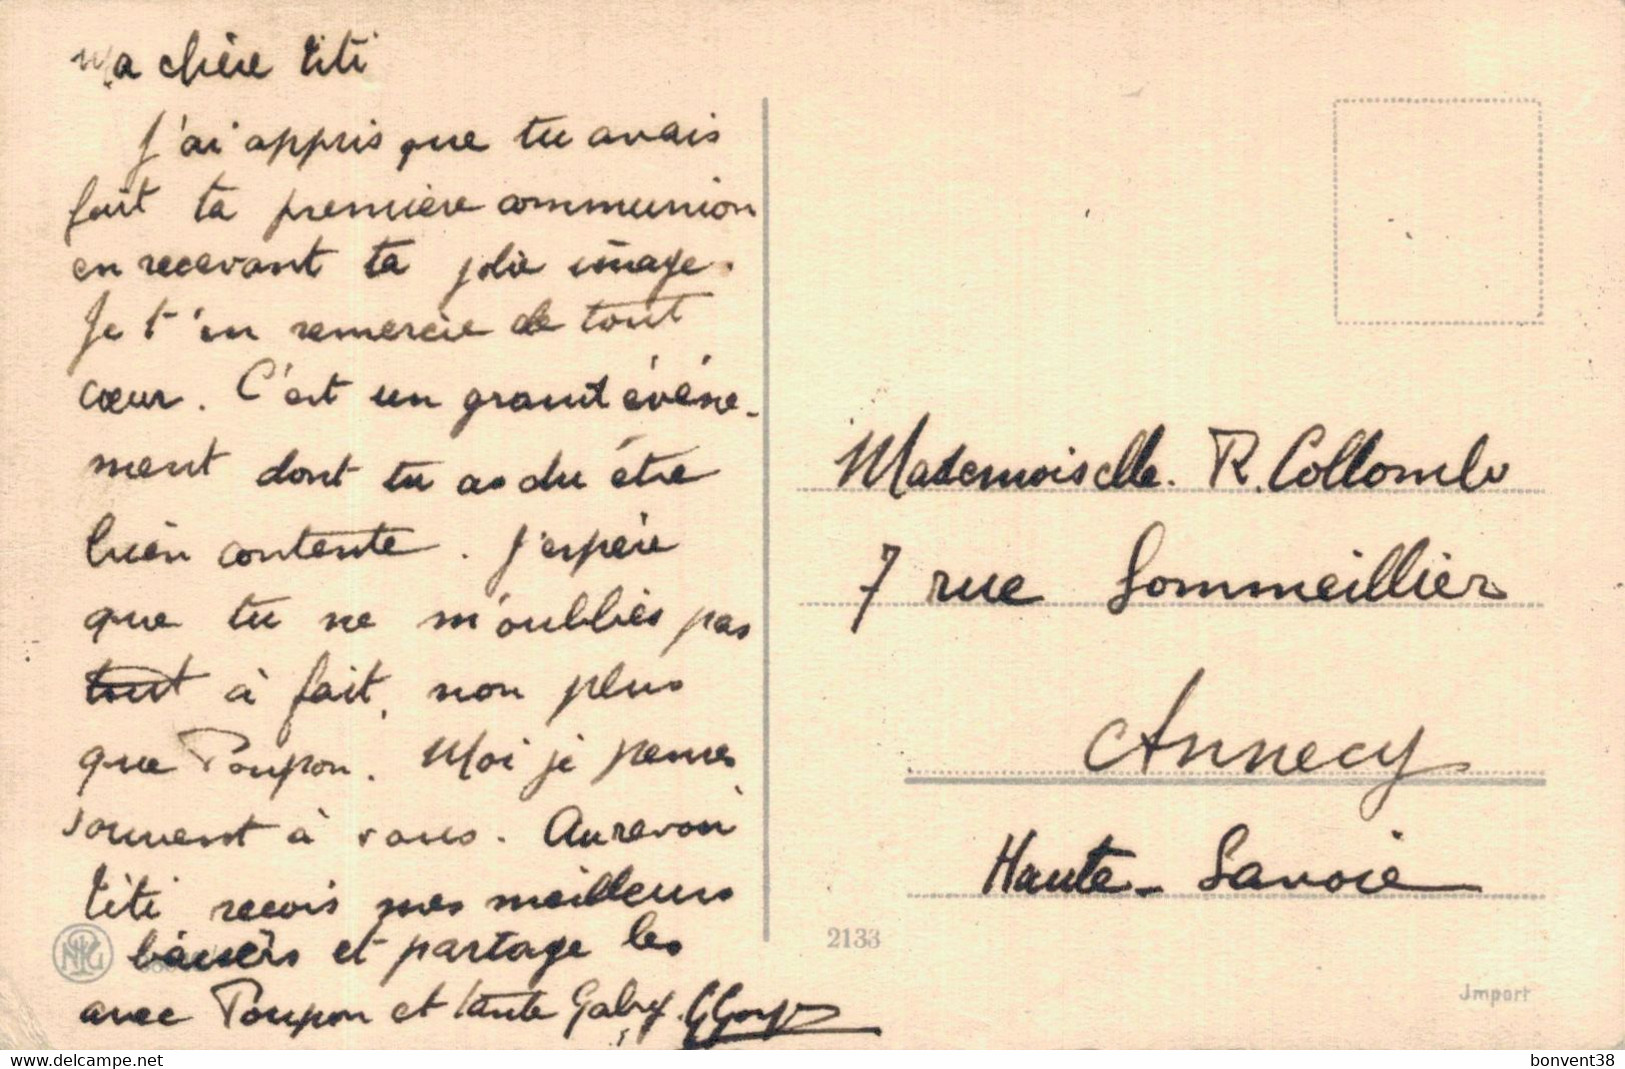 Ma chère titi
J'ai appris que tu avais
fait ta première communion
en recevant ta jolie image.
Je t'en remercie de tout
cœur. C'est un grand événe-
ment dont tu as du être
bien contente. J'espère
que tu ne m'oublies pas
tout à fait, non plus
que Poupon. Moi je pense
souvent à vous. Au revoir
titi reçois mes meilleurs
baisers et partage les
avec Poupon et tante Gaby.
Mademoiselle. R. Collomb
7 rue Sommeillier
Annecy
Haute-Savoie
2133
Import
bonvent38